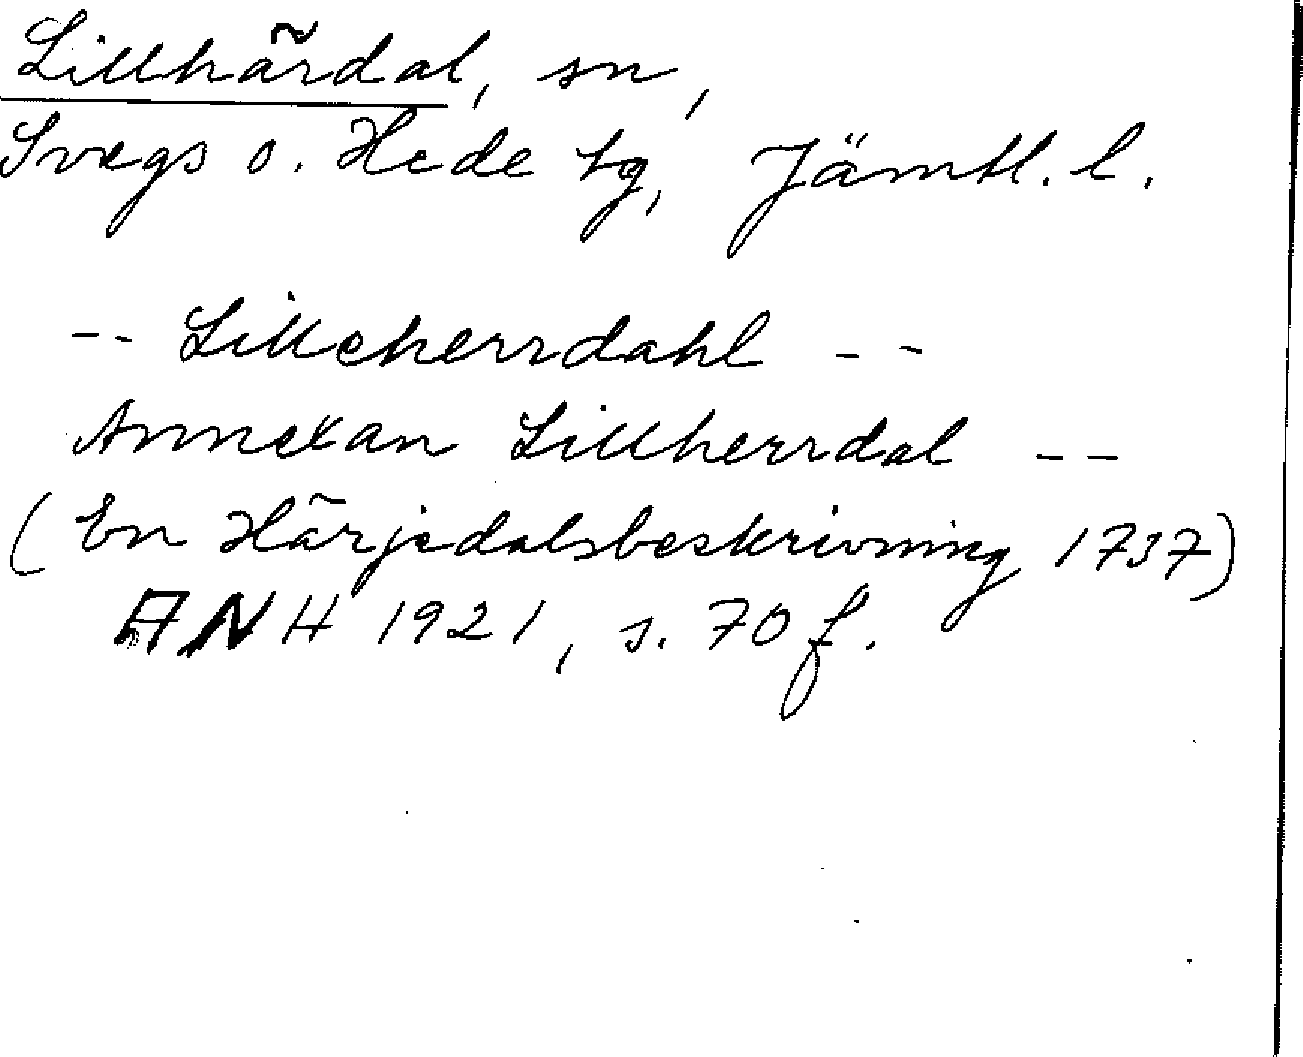 Lillhärdal, sn,
Svegs o. Hede tg, Jämtl. l.
-- Lilleherrdahl --
Annexan Lillherrdal --
(En Härjedalsbeskrivning 1737)
ANH 1921, s. 70 f.